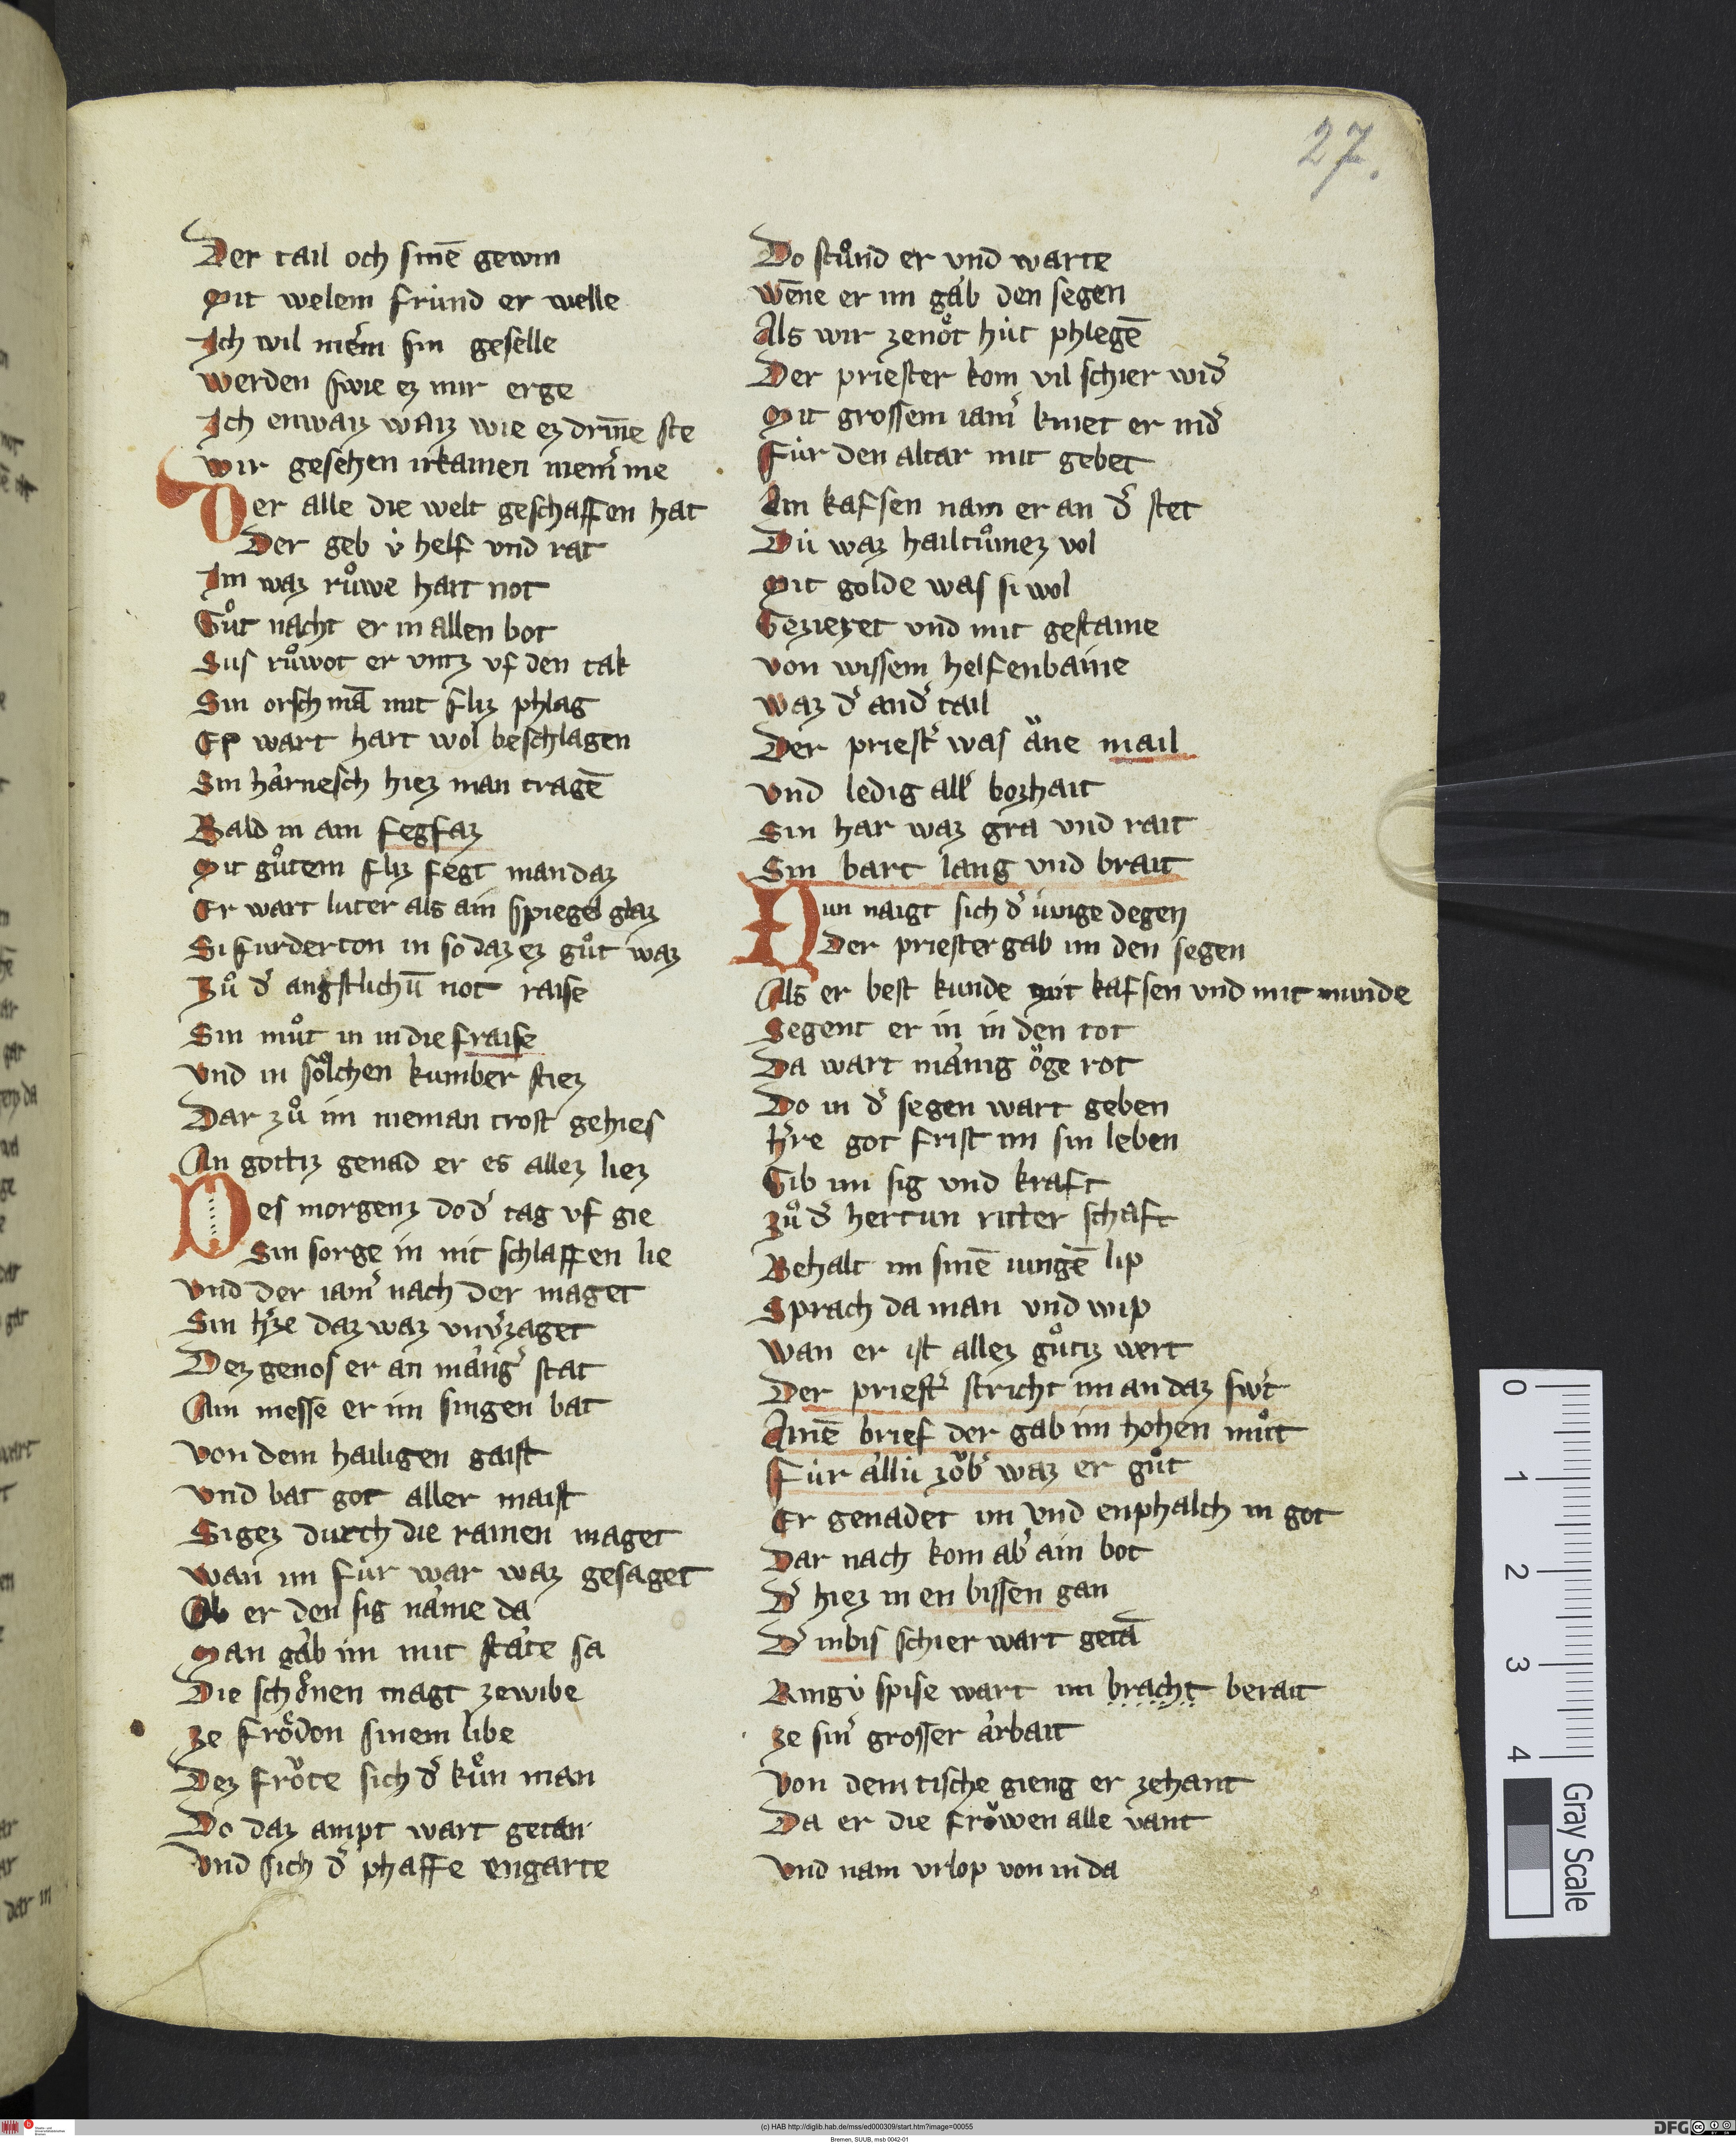 27.
Der tail och sinē gewin
Mit welem fründ er welle
Ich wil niem̄ sin geselle
Werden swie ez mir erge
Ich enwaiz waiz wie ez drīne ste
Wir gesehen irkainen niem̄ me
Der alle die welt geschaffen hat
Der geb v̇ helf vnd rat
Im waz růwe hart not
Gůt nacht er in allen bot
Sus růwot er vntz vf den tak
Sin orsch mā mit fliz phlag
Ez wart hart wol beschlagen
Sin härnesch hiez man tragē
Bald in ain fegfaz
Mit gůtem fliz fegt man daz
Er wart luter als ain spiegel glaz
Si furderton in so daz ez gůt waz
Zů dˀ angstlichū not raise
Sin můt in in die fraise
Vnd in sölchen kumber stiez
Dar zů im nieman trost gehies
An gottiz genad er es allez liez
Des morgenz do dˀ tag vf gie
Sin sorge in nit schlaffen lie
Vnd der iamˀ nach der maget
Sin hˀze daz waz vnvˀzaget
Dez genos er an mängˀ stat
Ain messe er im singen bat
Von dem hailigen gaist
Vnd bat got aller maist
Sigez durch die rainen maget
Wan im für war waz gesaget
Ob er den sig näme da
Man gäb im mit stäte sa
Die schönen magt zewibe
Ze frödon sinem libe
Dez fröte sich dˀ kůn man
Do daz ampt wart getan
Vnd sich dˀ phaffe engarte
Do stůnd er vnd warte
Wēne er im gäb den segen
Als wir zenöt hüt phlegē
Der priester kom vil schier widˀ
Mit grossem iamˀ kniet er nidˀ
Für den altar mit gebet
Ain kafsen nam er an dˀ stet
Dü waz hailtůmez vol
Mit golde was si wol
Gezieret vnd mit gestaine
Von wissem helfenbaine
Waz dˀ andˀ tail
Der priestˀ was äne mail
Vnd ledig allˀ bozhait
Sin har waz gra vnd rait
Sin bart lang vnd brait
Nun naigt sich dˀ iunge degen
Der priester gab im den segen
Als er best kunde mit kafsen vnd mit munde
Segent er in in den tot
Da wart mänig öge rot
Do in dˀ segen wart geben
Hˀre got frist im sin leben
Gib im sig vnd kraft
Zů dˀ hertun ritter schaft
Behalt im sinē iungē lip
Sprach da man vnd wip
Wan er ist allez gůtiz wert
Der priestˀ stricht im an daz swˀt
Ainē brief der gab im hohen můt
Für ällü zöbˀ waz er gůt
Er genadet im vnd enphalch in got
Dar nach kom abˀ ain bot
Dˀ hiez in en bissen gan
Dˀ inbis schier wart getā
Ringv̇ spise wart im bracht berait
Ze sinˀ grosser ärbait
Von dem tische gieng er zehant
Da er die fröwen alle vant
Vnd nam vrlop von in da
0
1
2
3
4
Gray Scale
(c) HAB http://diglib.hab.de/mss/ed000309/start.htm?image=00055
Bremen, SUUB, msb 0042-01
DFG